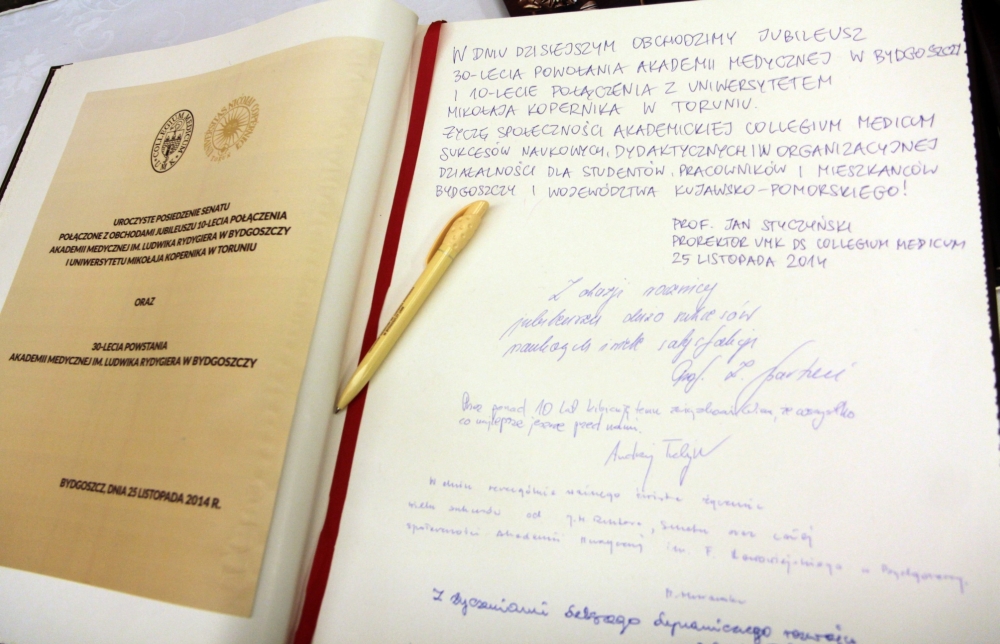 COLLEGIUM MEDICUM
UROCZYSTE POSIEDZENIE SENATU
POŁĄCZONE Z OBCHODAMI JUBILEUSZU 10-LECIA POŁĄCZENIA
AKADEMII MEDYCZNEJ IM. LUDWIKA RYDYGIERA W BYDGOSZCZY
I UNIWERSYTETU MIKOŁAJA KOPERNIKA W TORUNIU
ORAZ
30-LECIA POWSTANIA
AKADEMII MEDYCZNEJ IM. LUDWIKA RYDYGIERA W BYDGOSZCZY
BYDGOSZCZ, DNIA 25 LISTOPADA 2014 R.
W DNIU DZISIEJSZYM OBCHODZIMY JUBILEUSZ
30-LECIA POWOŁANIA AKADEMII MEDYCZNEJ W BYDGOSZCZY
I 10-LECIE POŁĄCZENIA Z UNIWERSYTETEM
MIKOŁAJA KOPERNIKA W TORUNIU.
ŻYCZĘ SPOŁECZNOŚCI AKADEMICKIEJ COLLEGIUM MEDICUM
SUKCESÓW NAUKOWYCH, DYDAKTYCZNYCH I W ORGANIZACYJNEJ
DZIAŁALNOŚCI DLA STUDENTÓW, PRACOWNIKÓW I MIESZKAŃCÓW
BYDGOSZCZY I WOJEWÓDZTWA KUJAWSKO-POMORSKIEGO!
PROF. JAN STYCZYŃSKI
PROREKTOR UMK DS COLLEGIUM MEDICUM
25 LISTOPADA 2014
Z okazji rocznicy
jubileuszu dużo sukcesów
naukowych i satysfakcji
Prof. Z.
ponad 10 lat temu, że wszystko
co najlepsze jeszcze przed nami.
Andrzej
W dniu szczególnie ważnego życzenia
wielu sukcesów od Senatu oraz całej
społeczności Akademii Muzycznej im. F. Nowowiejskiego w Bydgoszczy.
Z życzeniami dalszego dynamicznego rozwoju